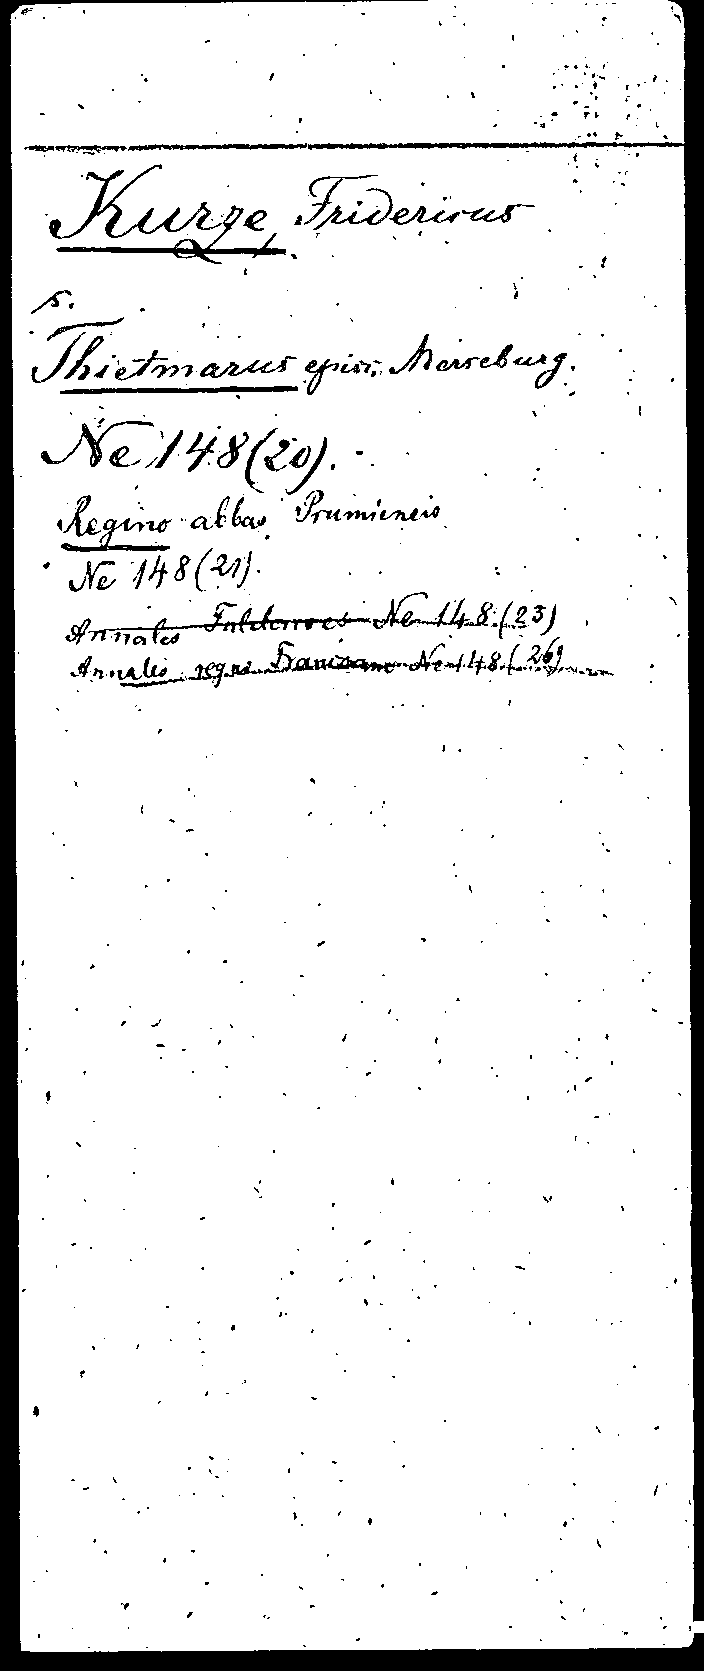 Kurze, Fridericus
s.
Thietmarus episc. Merseburg.
Ne 148(20).
Regino abbas Prumiensis
Ne 148(21).
Annales Fuldenses Ne 148.(23)
Annales regni Francorum Ne 148.(26)